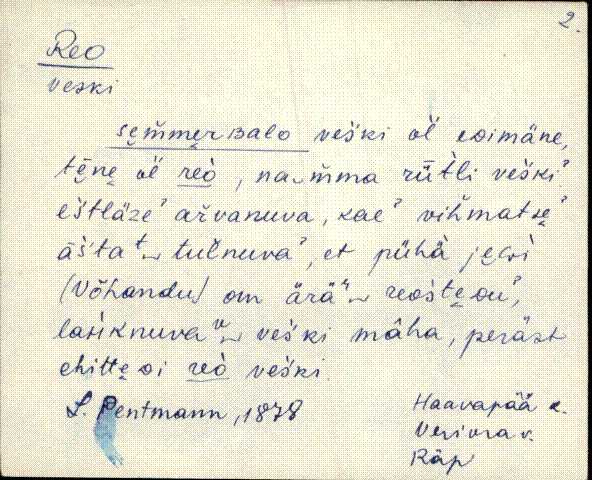 2.
Reo
veski
sem̆mer balo veški ol̆ esimäne,
tēne ol̆ reò, na m̆ma rüt̀li veškiˀ
eštläzeˀ ařvanuva, kaeˀ vihmatseˀ
āšta tuľnuvaˀ, et pühä jegi
(Võhandu) om ärä reošteduˀ,
lahknuva veški mäha, peräst
ehitteoi reò veški.
L. Pentmann, 1878
Haavapää k.
Veriora v.
Räp